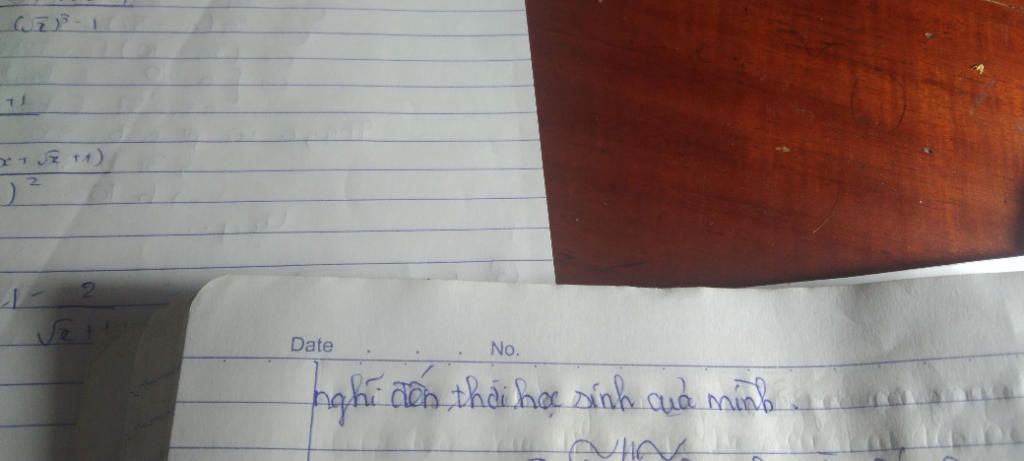 (√x)³ - 1
+1
x + √x + 1)
)²
1 - 2
√x + 1
Date . . . No.
nghĩ đến thời học sinh quả mình.